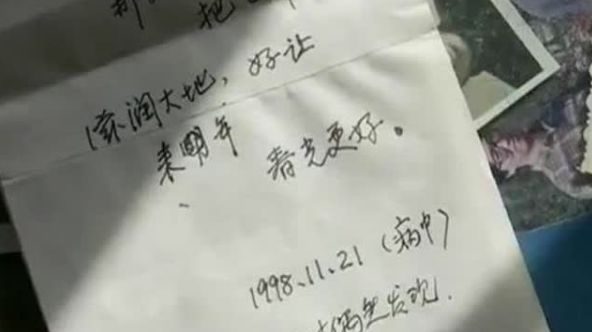 把
滋润大地，好让
来明年 春光更好。
1998.11.21（病中）
发现.